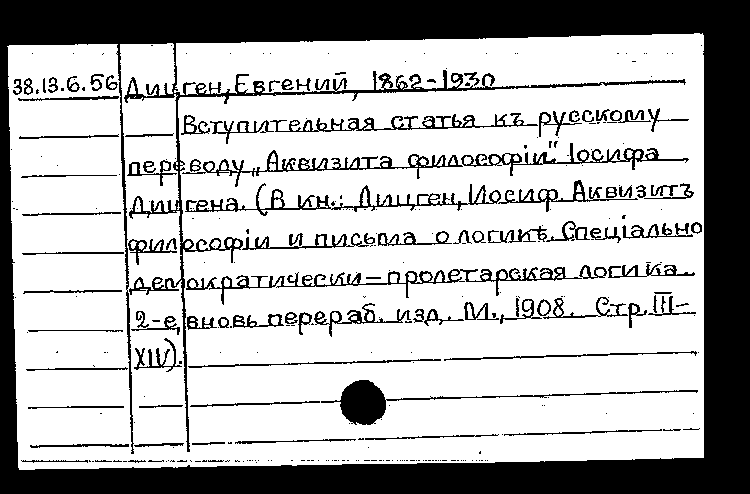 38.13.6.56 Дицген, Евгений, 1862-1930
Вступительная статья къ русскому
переводу „Аквизита философіи". Іосифа
Дицгена. (В кн.: Дицген, Иосиф. Аквизитъ
философіи и письма о логикѣ. Спеціально
демократически-пролетарская логика.
2-е, вновь перераб. изд. М., 1908. Стр. III-
XIV).